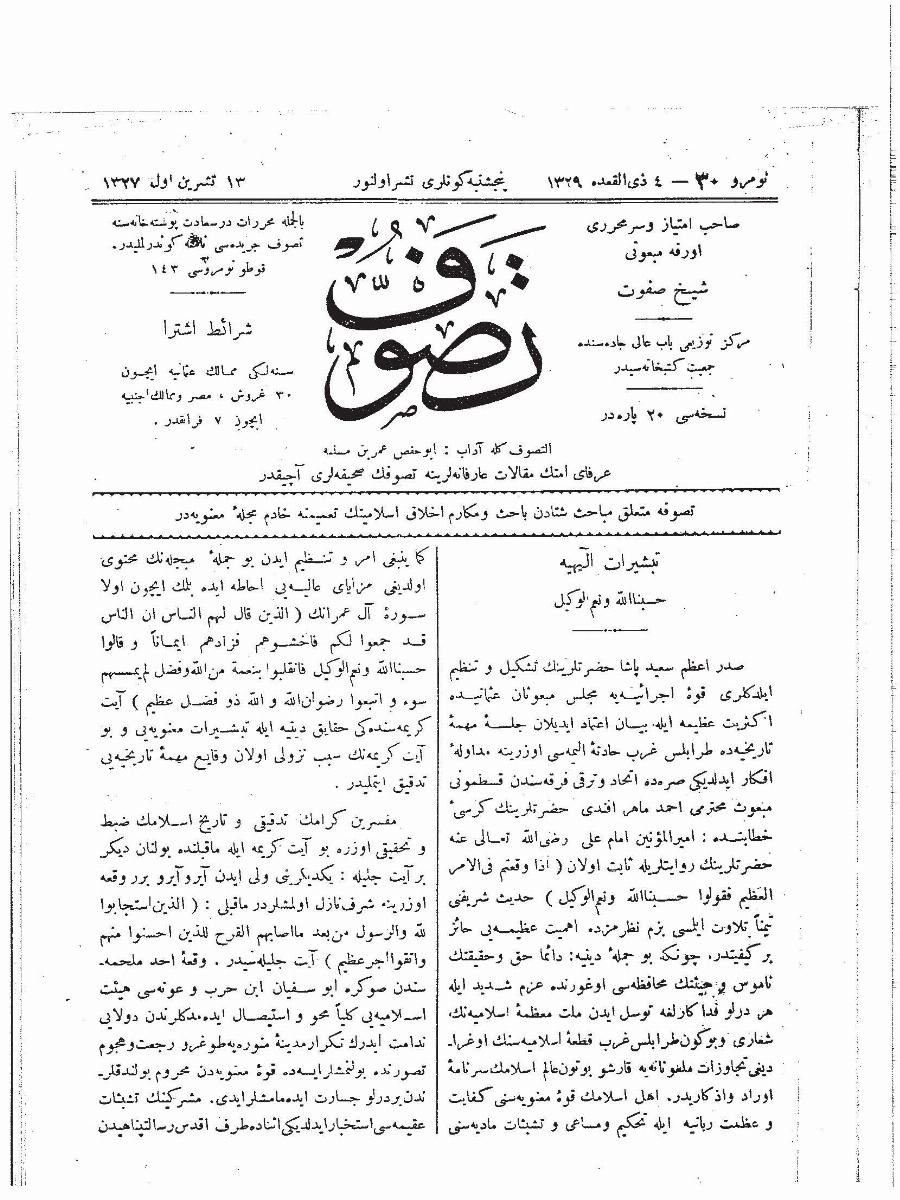 نومرو ٣٠ — ٤ ذی‌القعده ١٣٢٩
پنجشنبه کونلری نشر اولنور
١٣ تشرین اول ١٣٢٧
صاحب امتیاز وسر محرری
اورفه مبعوثی
شیخ صفوت
مرکز توزیعی باب عالی جاده‌سنده
جمعیت کتبخانه‌سیدر
نسخه‌سی ٢٠ پاره‌در
تصوف
بالجمله محررات درسعادت پوسته‌خانه‌سنه
تصوف جریده‌سی نامنه کوندرلملیدر.
قوطو نومروسی ١٤٣
شرائط اشترا
سنه‌لکی ممالك عثمانیه ایچون
٣٠ غروش ، مصر وممالك اجنبیه
ایچون ٧ فرانقدر .
التصوف کله آداب : ابوحفص عمر بن مسلمه
عرفای امتك مقالات عارفانه‌لرینه تصوفك صحیفه‌لری آچیقدر
تصوفه متعلق مباحث شتادن باحث ومکارم اخلاق اسلامیتك تعمیمنه خادم مجلهٔ معنویه‌در
تبشیرات الٓهیه
حسبناالله ونعم‌الوکیل
صدر اعظم سعید پاشا حضرتلرینك تشکیل و تنظیم
ایلدکلری قوهٔ اجرائیه‌یه مجلس مبعوثان عثمانیده
اکثریت عظیمه ایله بیان اعتماد ایدیلان جلسهٔ مهمهٔ
تاریخیه‌ده طرابلس غرب حادثهٔ الیمه‌سی اوزرینه مداولهٔ
افکار ایدلدیکی صره‌ده اتحاد وترقی فرقه‌سندن قسطمونی
مبعوث محترمی احمد ماهر افندی حضرتلرینك کرسیٔ
خطابتده : امیرالمؤمنین امام علی رضی‌الله تعالی عنه
حضرتلرینك روایتلریله ثابت اولان ( اذا وقعتم فی‌الامر
العظیم فقولوا حسبناالله ونعم‌الوکیل ) حدیث شریفنی
تیمناً تلاوت ایلمسی بزم نظرمزده اهمیت عظیمه‌یی حائز
بر کیفیتدر. چونکه بو جملهٔ دینیه: دائما حق وحقیقتك
ناموس و هیئتك محافظه‌سی اوغورنده عزم شدید ایله
هر درلو فداکارلغه توسل ایدن ملت معظمهٔ اسلامیه‌نك
شعاری وبوکون طرابلس غرب قطعهٔ اسلامیه‌سنك اوغرا‌-
دیغی تجاوزات ملعونانه‌یه قارشو بوتون عالم اسلامك سرنامهٔ
اوراد واذکاریدر. اهل اسلامك قوهٔ معنویه‌سنی کفایت
و عظمت ربانیه ایله تحکیم ومساعی و تشبثات مادیه‌سنی
کما ینبغی امر و تنظیم ایدن بو جملهٔ مبجله‌نك محتوی
اولدیغی مزایای عالیه‌یی احاطه ایده بیلمك ایچون اولا
سورهٔ آل عمرانك ( الذین قال لهم الناس ان الناس
قد جمعوا لکم فاخشوهم فزادهم ایماناً و قالوا
حسبناالله ونعم‌الوکیل فانقلبوا بنعمة من‌الله وفضل لم‌یمسسهم
سوء و اتبعوا رضوان‌الله و الله ذو فضل عظیم ) آیت
کریمه‌سنده‌کی حقایق دینیه ایله تبشیرات معنویه‌یی و بو
آیت کریمه‌نك سبب نزولی اولان وقایع مهمهٔ تاریخیه‌یی
تدقیق ایتملیدر .
مفسرین کرامك تدقیقی و تاریخ اسلامك ضبط
و تحقیقی اوزره بو آیت کریمه ایله ماقبلنده بولنان دیکر
بر آیت جلیله : یکدیکرینی ولی ایدن آیرو آیرو برر وقعه
اوزرینه شرف‌نازل اولمشلردر ماقبلی : ( الذین استجابوا
لله والرسول من‌بعد مااصابهم القرح للذین احسنوا منهم
واتقوا اجر عظیم ) آیت جلیله‌سیدر . وقعهٔ احد ملحمه‌-
سندن صوکره ابو سفیان ابن حرب و عونه‌سی هیئت
اسلامیه‌یی کلیاً محو و استیصال ایده‌مدکلرندن دولایی
ندامت ایدرك تکرار مدینهٔ منوره‌یه طوغرو رجعت وهجوم
تصورنده بولنمشلرایسه‌ده قوهٔ معنویه‌دن محروم بولندقلر-
ندن بردرلو جسارت ایده‌مامشلرایدی. مشرکینك تشبثات
عقیمه‌سی استخبار ایدلدیکی اثناده طرف اقدس رسالتپناهیدن